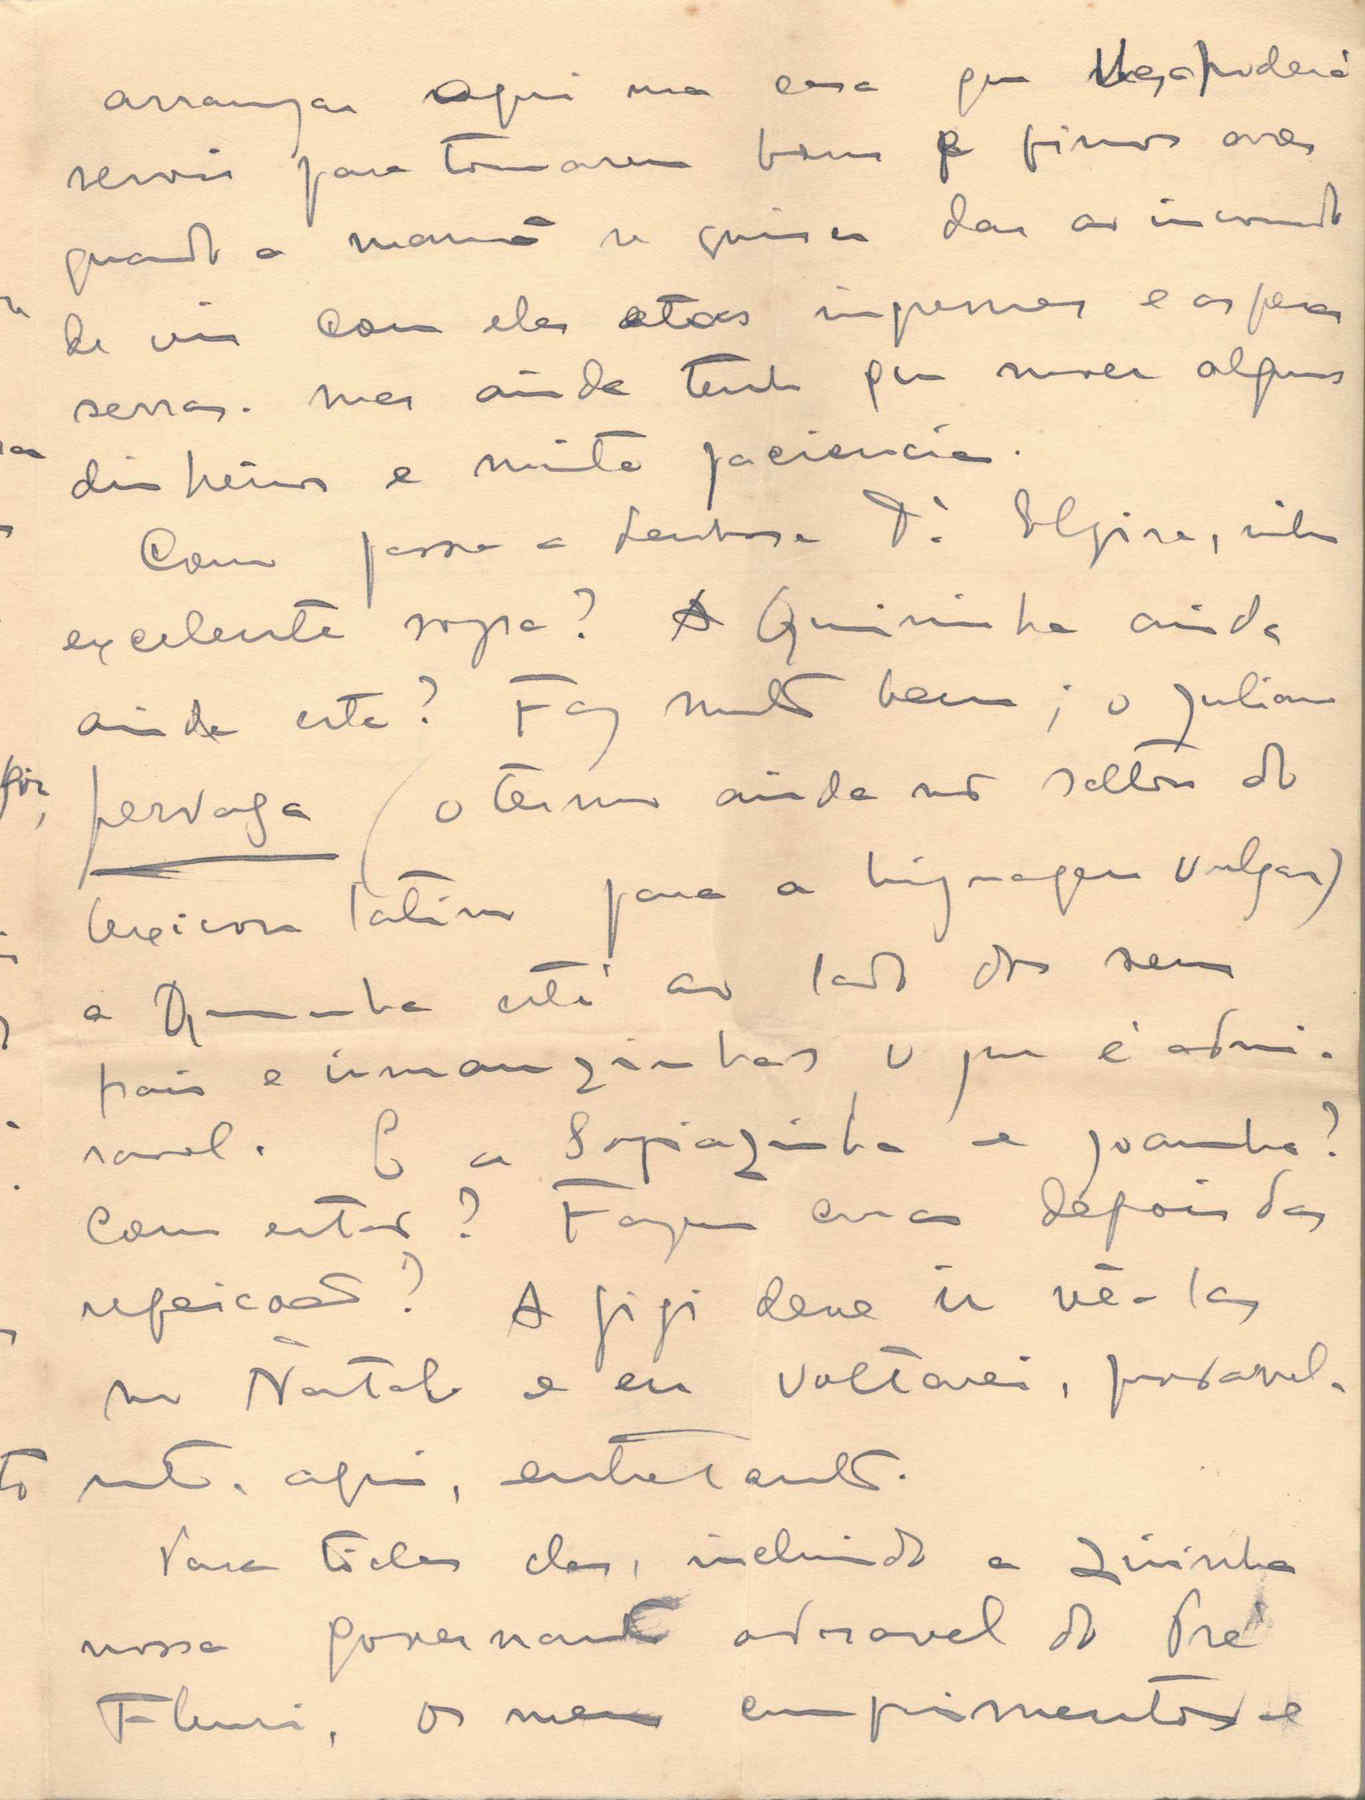 arranjar aqui uma casa que lhes poderá
servir para tomarem bons e finos ares
quando a mamã se quiser dar ao incomodo
de vir com eles a estas ingremes e asperas
serras. mas ainda tenho que mover alguns
dinheiros e muita paciencia.
Como passa a bondosa D. Elzira, minha
excelente sogra? A Quininha ainda
ainda está? Faz muito bem; o Juliano
pervaga (o termo ainda não saltou do
lexicon latino para a linguagem vulgar)
a Quininha está ao lado dos seus
pais e irmanzinhas o que é admi-
ravel. E a Sofiazinha e Joaninha?
Como estão? Fazem cenas depois das
refeicoes? A Gigi deve ir vê-las
no Natal e eu voltarei, provavel-
mente. aqui, entretanto.
Para todas elas, incluindo a Zizinha
nossa governante adoravel do Pré
Fleuri, os meus cumprimentos e